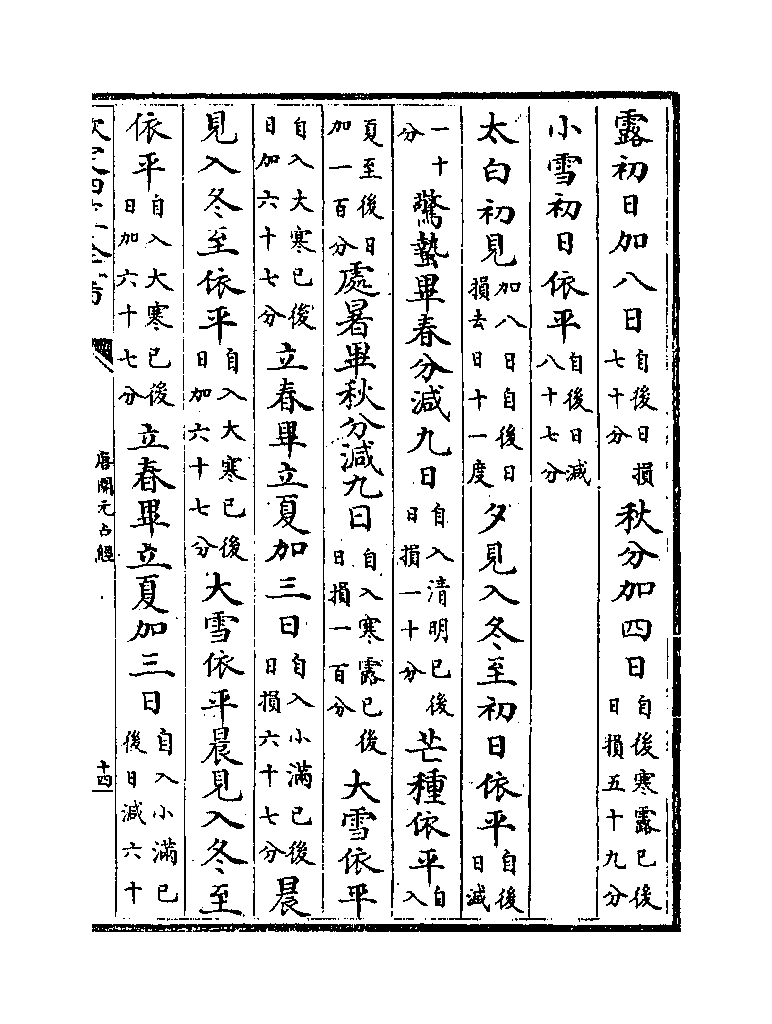 露初日加八日自後日損七十分秋分加四日自後寒露已後日損五十九分
小雪初日依平自後日減八十七分
太白初見加八日自後日損去日十一度夕見入冬至初日依平自後日減
一十分驚蟄畢春分減九日自入清明已後日損一十分芒種依平自入
夏至後日加一百分處暑畢秋分減九日自入寒露已後日損一百分大雪依平
自入大寒已後日加六十七分立春畢立夏加三日自入小滿已後日損六十七分晨
見入冬至依平自入大寒已後日加六十七分大雪依平晨見入冬至
依平自入大寒已後日加六十七分立春畢立夏加三日自入小滿已後日減六十
唐開元占經
十四